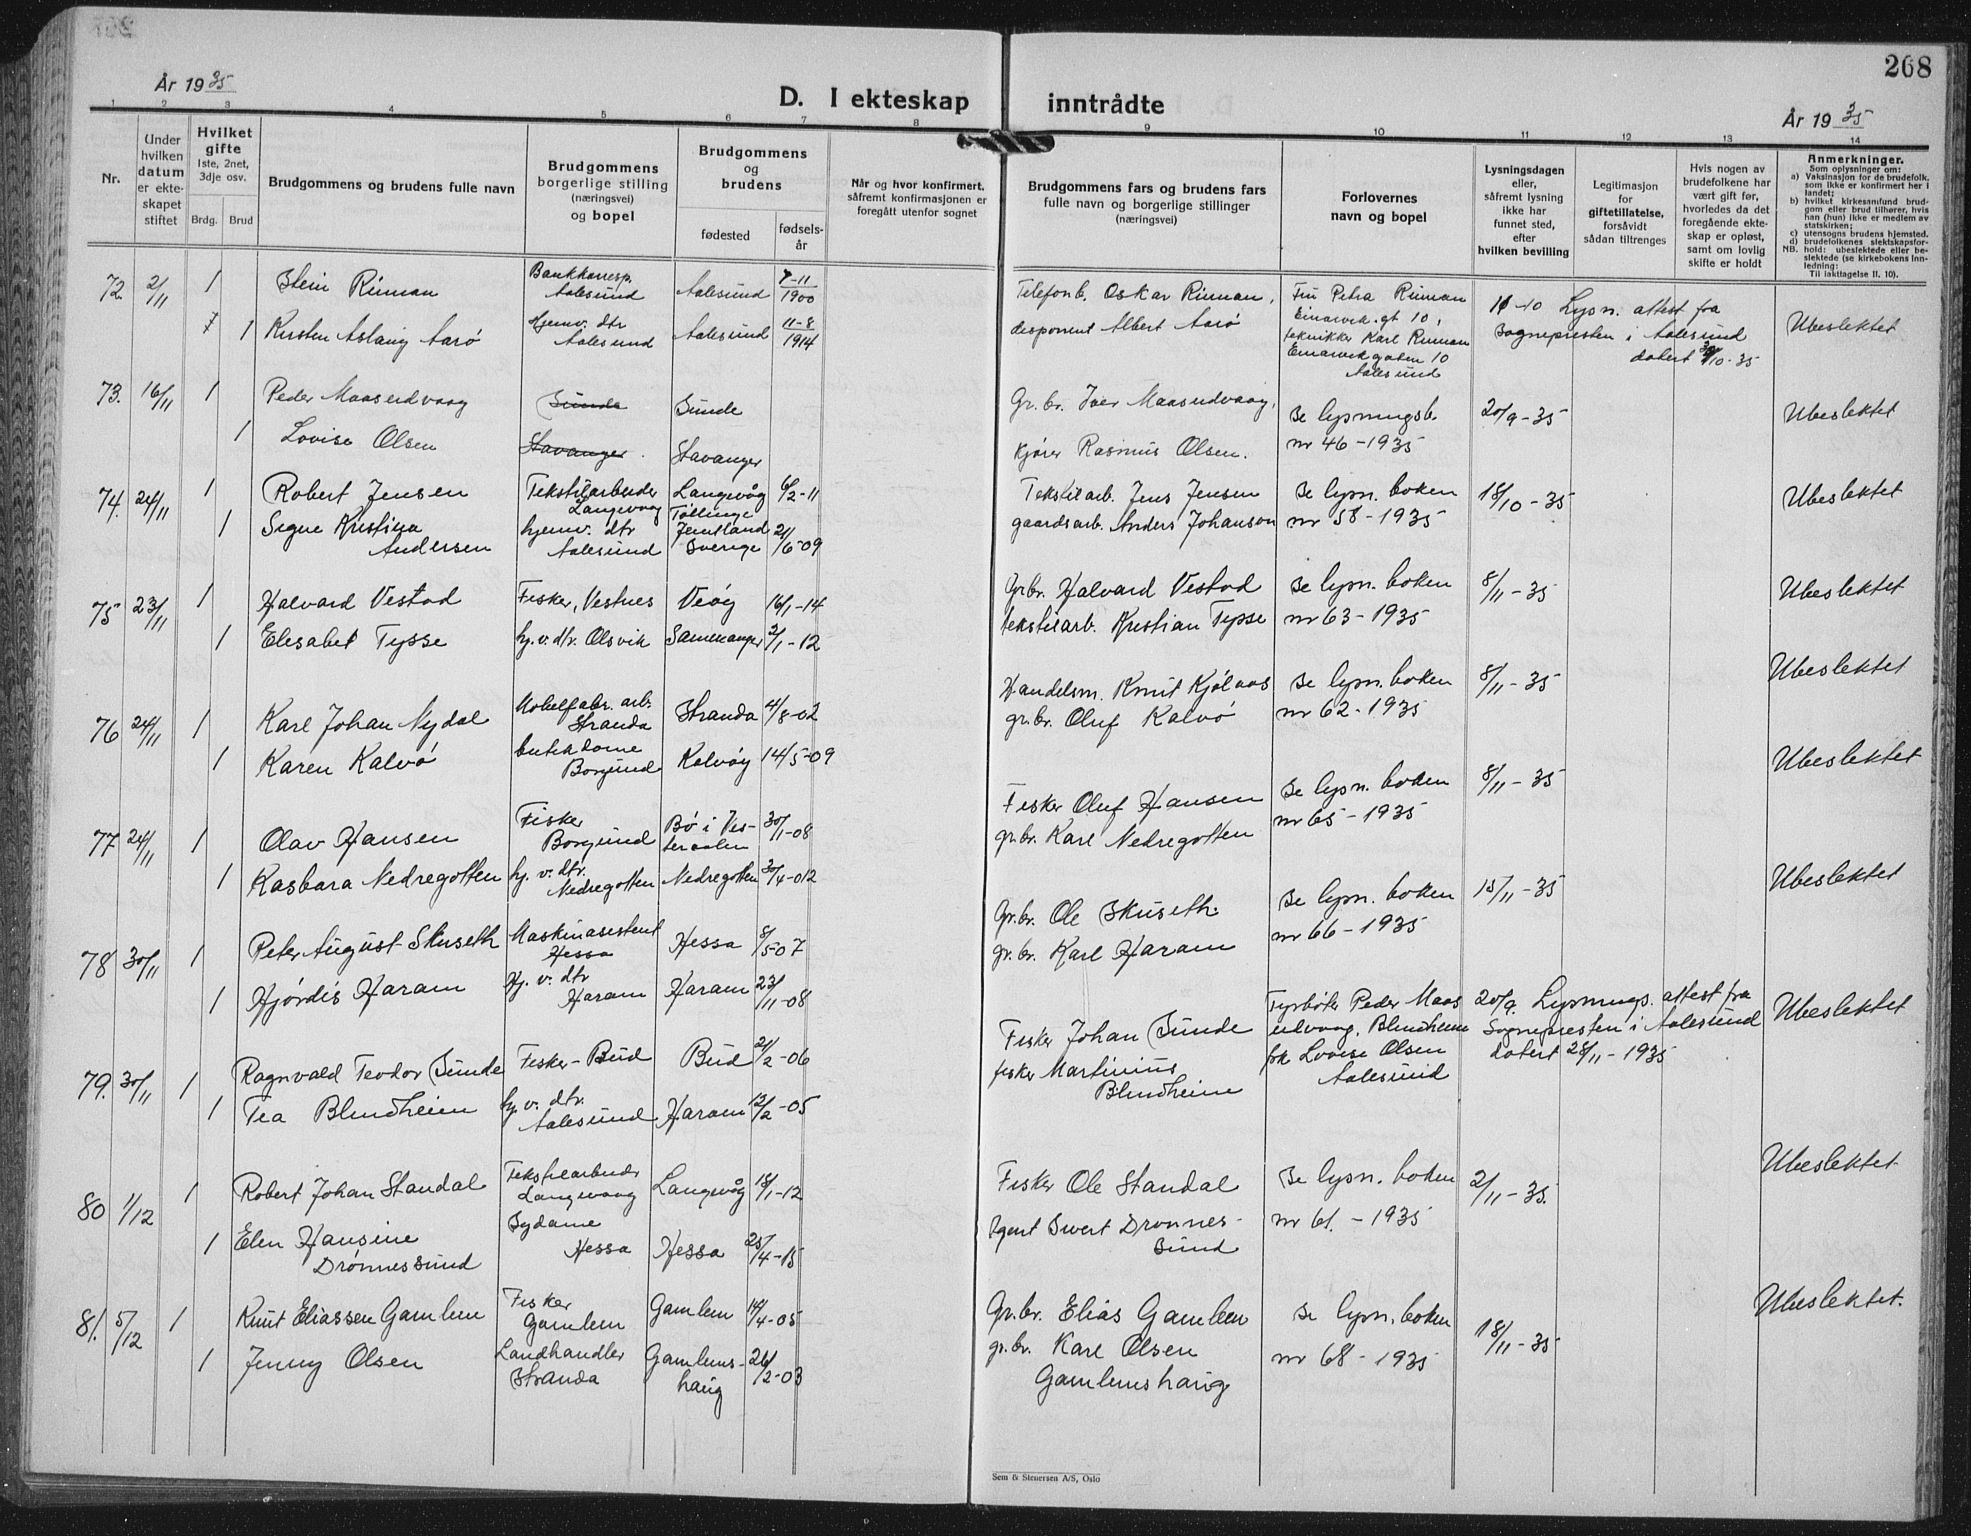 268
År 1935
D. I ekteskap inntrådte
År 1935
1 2 3 4 5 6 7 8 9 10 11 12 13 14
Nr.
Under hvilken datum er ekteskapet stiftet
Hvilket gifte
1ste, 2net, 3dje osv.
Brdg. Brud
Brudgommens og brudens fulle navn
Brudgommens borgerlige stilling (næringsvei) og bopel
Brudgommens og brudens
fødested
fødselsår
Når og hvor konfirmert, såfremt konfirmasjonen er foregått utenfor sognet
Brudgommens fars og brudens fars fulle navn og borgerlige stillinger (næringsvei)
Forlovernes navn og bopel
Lysningsdagen eller, såfremt lysning ikke har funnet sted, efter hvilken bevilling
Legitimasjon for giftetillatelse, forsåvidt sådan tiltrenges
Hvis nogen av brudefolkene har vært gift før, hvorledes da det foregående ekteskap er opløst, samt om lovlig skifte er holdt
Anmerkninger.
Som oplysninger om:
a) Vaksinasjon for de brudefolk, som ikke er konfirmert her i landet;
b) hvilket kirkesamfund brudgom eller brud tilhører, hvis han (hun) ikke er medlem av statskirken;
c) utensogns brudens hjemsted.
d) brudefolkenes slektskapsforhold: ubeslektede eller beslektede (se kirkebokens innledning:
NB. Til iakttagelse II. 10).
72. 2/11 1 Stein Rinnan Bankkorresp. Aalesund Aalesund 7-11 1900 Telefonb. Oskar Rinnan, Fru Petra Rinnan 11-10 Lysn. attest fra
1 Kirsten Aslaug Aarø Hjemv. dtr Aalesund Aalesund 11-8 1914 disponent Albert Aarø gt 10, tekniker Karl Rinnan 10 Aalesund Sognepresten i Aalesund datert 30/10-35 Ubeslektet
73. 16/11 1 Peder Maaseidvaag Sunde Sunde Gr.br. Iver Maaseidvaag, Se lysningsb. 20/9-35 Ubeslektet
1 Lovise Olsen Stavanger Stavanger Kjører Rasmus Olsen. nr 46-1935
74. 24/11 1 Robert Jensen Tekstilarbeider Langevaag Langevåg 6/2-11 Tekstilarb. Jens Jensen Se lysn. boken 18/10-35 Ubeslektet
1 Signe Kristina Andersen hjemv. dtr Aalesund Jemtland Sverige 21/6-09 gaardsarb. Anders Johanson nr 58-1935
75 23/11 1 Halvard Vestad Fisker, Vestnes Veøy 16/1-14 Gr.br. Halvard Vestad Se lysn. boken 8/11-35 Ubeslektet
1 Elisabet Tysse hj.v.dtr. Olsvik Samnanger 2/1-12 tekstilarb. Kristian Tysse nr 63-1935
76 24/11 1 Karl Johan Nydal Møbelfabr. arb. Stranda Stranda 4/8-02 Handelsm. Knut Kjølaas Se lysn. boken 8/11-35 Ubeslektet
1 Karen Kalvø butikdame Borgund Kalvøy 14/5-09 gr.br. Oluf Kalvø nr 62-1935
77 24/11 1 Olav Hansen Fisker Borgund Bø i Vesteraalen 30/1-08 Fisker Oluf Hansen Se lysn. boken 8/11-35 Ubeslektet
1 Rasbara Nedregotten hj. v. dtr. Nedregotten Nedregotten 30/4-012 gr.br. Karl Nedregotten nr 65-1935
78 30/11 1 Peter August Skuseth Maskinasistent Hessa Hessa 8/5-07 Gr.br. Ole Skuseth. Se lysn. boken 15/11-35 Ubeslektet
1 Hjørdis Haram Hj. v. dtr Haram Haram 23/11-08 gr.br. Karl Haram nr 66-1935
79. 30/11 1 Ragnvald Teodor Sunde Fisker-Bud Bud 21/2-06 Fisker Johan Sunde Fyrbøter Peder Maaseidvaag, Blindheim 20/9. Lysnings. attest fra Ubeslektet
1 Tea Blindheim hj. v. dtr. Aalesund Haram 12/2-05 fisker Martinius Blindheim frk Lovise Olsen Aalesund Sognepresten i Aalesund datert 28/11-1935
80 1/12 1 Robert Johan Standal Tekstilarbeider Langevaag Langevåg 18/1-12 Fisker Ole Standal Se lysn. boken 2/11-35. Ubeslektet
1 Elen Hansine Drønnessund Sydame Hessa Hessa 25/4-15 Agent Sivert Drønnessund nr 61.-1935
81. 5/12 1 Knut Eliassen Gamlem Fisker Gamlem Gamlem 14/4-05 Gr.br. Elias Gamlem Se lysn. boken 18/11-35 Ubeslektet.
1 Jenny Olsen Landhandler Stranda Gamlemshaug 26/2-03 gr.br. Karl Olsen Gamlemshaug nr 68-1935
Sem & Stenersen A/S, Oslo